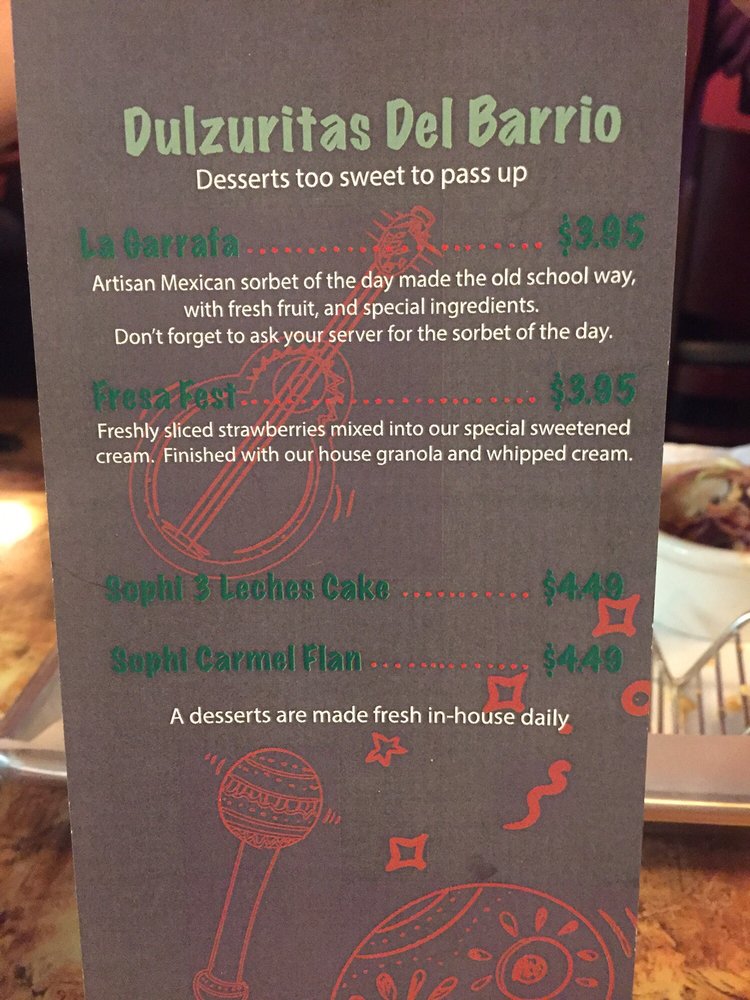 Dulzuritas Del Barrio
Desserts too sweet to pass up
La Garrafa.............................. $3.95
Artisan Mexican sorbet of the day made the old school way,
with fresh fruit, and special ingredients.
Don't forget to ask your server for the sorbet of the day.
Fresa Fest.............................. $3.95
Freshly sliced strawberries mixed into our special sweetened
cream. Finished with our house granola and whipped cream.
Sophi 3 Leches Cake ............ $4.49
Sophi Carmel Flan ............... $4.49
A desserts are made fresh in-house daily